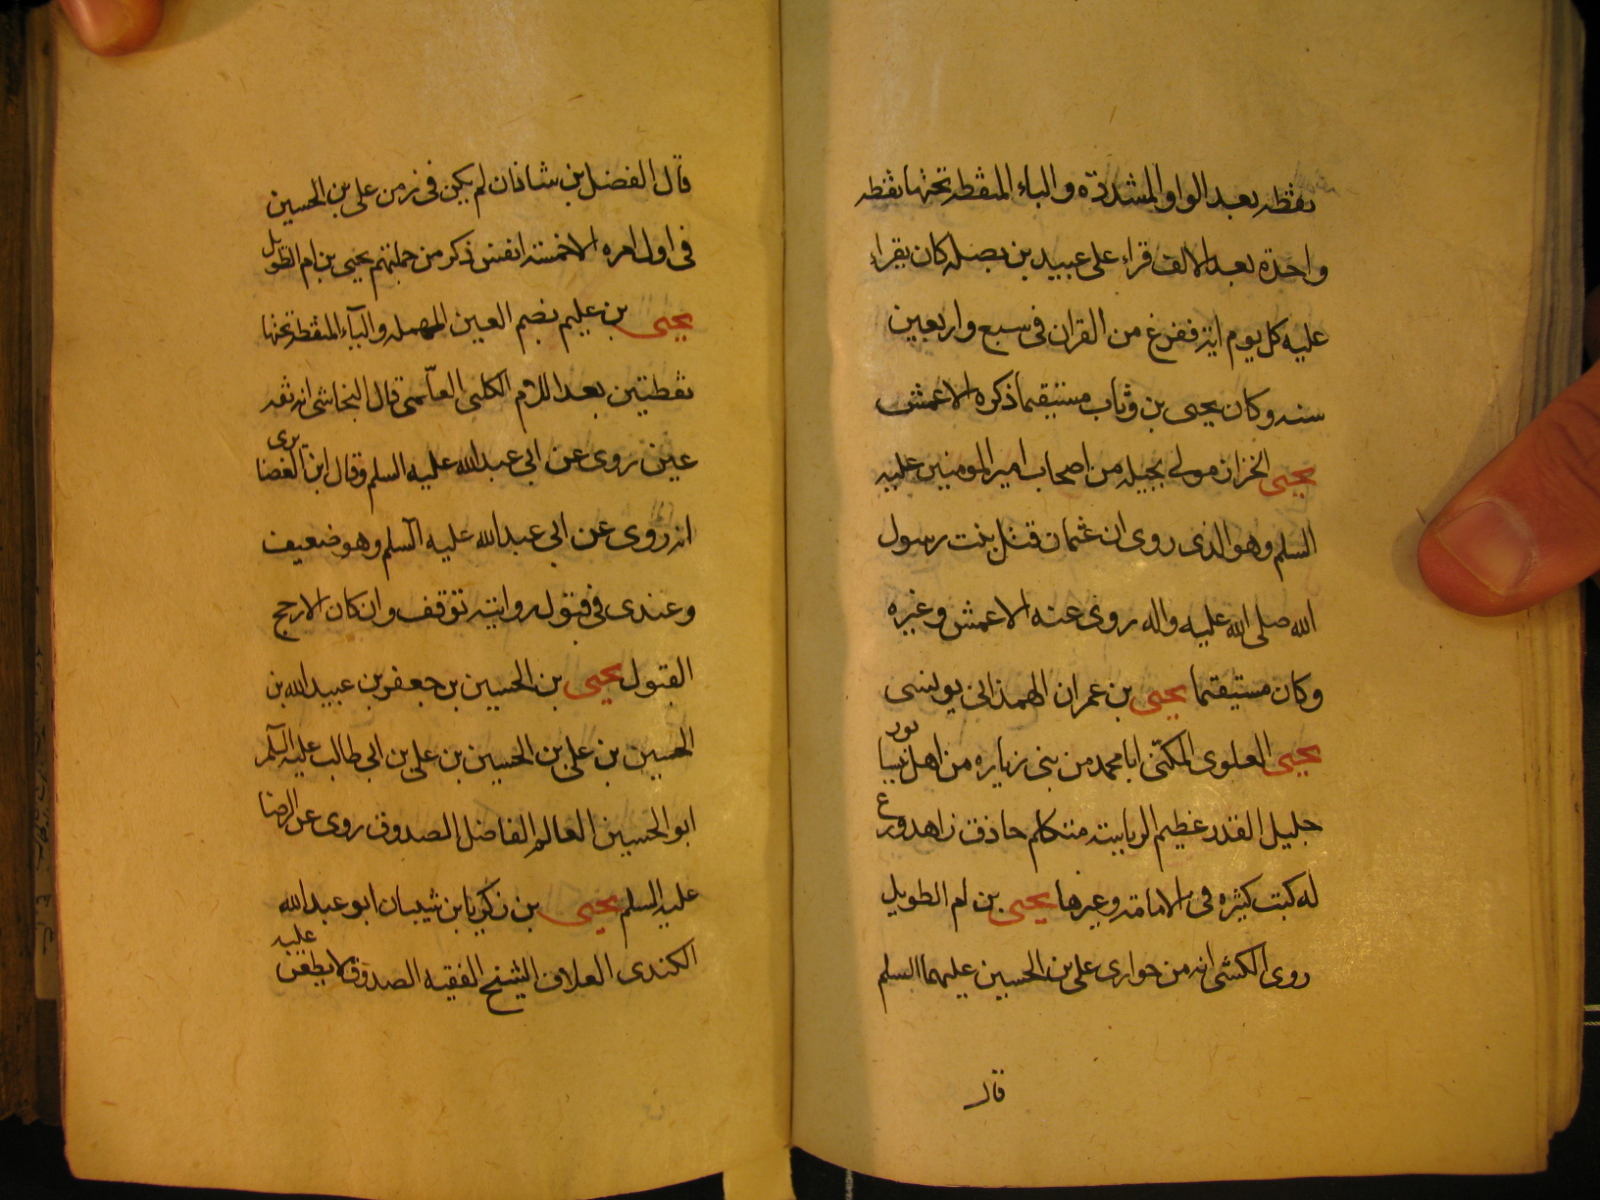 نقطه بعد الواو المشددة والباء المنقطه تحتها نقطه
واحدة بعد الالف قراء على عبيد بن نضله كان يقراء
عليه كل يوم اية ففرغ من القران فى سبع واربعين
سنه وكان يحيى بن وثاب مستقيما ذكره الاعمش
يحيى الخزان مولى بجيله من اصحاب امير المومنين عليه
السلم وهو الذى روى ان عثمان قتل بنت رسول
الله صلى الله عليه واله روى عنه الاعمش وغيره
وكان مستيقما يحيى بن عمران الهمدانى يونسى
يحيى العلوى المكنى ابا محمد من بنى زياره من اهل نيسابور
جليل القدر عظيم الرياسة متكلم حاذق زاهد ورع
له كتب كثيره فى الامامة وغيرها يحيى بن ام الطويل
روى الكشى انه من حوارى على بن الحسين عليهما السلم
قال
قال الفضل بن شاذان لم يكن فى زمن على بن الحسين
فى اول امره الا خمسة انفس ذكر من جملتهم يحيى بن ام الطويل
يحيى بن عليم بضم العين المهمله والياء المنقطة تحتها
نقطتين بعد اللام الكلبى العلّمى قال النجاشى انه ثقه
عين روى عن ابى عبدالله عليه السلم وقال ابن الغضايرى
انه روى عن ابى عبدالله عليه السلم وهو ضعيف
وعندى فى قبول روايته توقف وان كان الارجح
القبول يحيى بن الحسين بن جعفر بن عبيدالله بن
الحسين بن على بن الحسين بن على بن ابى طالب عليه السلم
ابو الحسين العالم الفاضل الصدوق روى عن الرضا
عليه السلم يحيى بن زكريا بن شيبان ابو عبدالله
الكندى العلاف الشيخ الفقيه الصدوق لا يطعن عليه